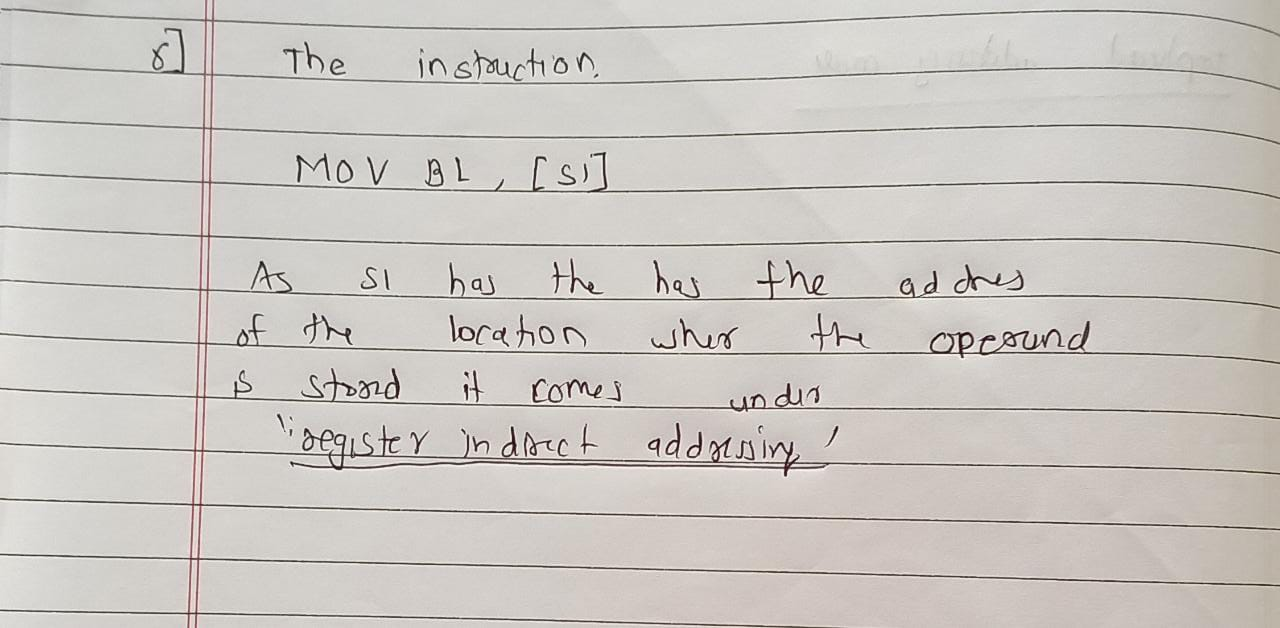 8]
The instruction.
MOV BL, [SI]
As SI has the has the addres
of the location wher the operund
is stored it comes under
"register indirect addressing'